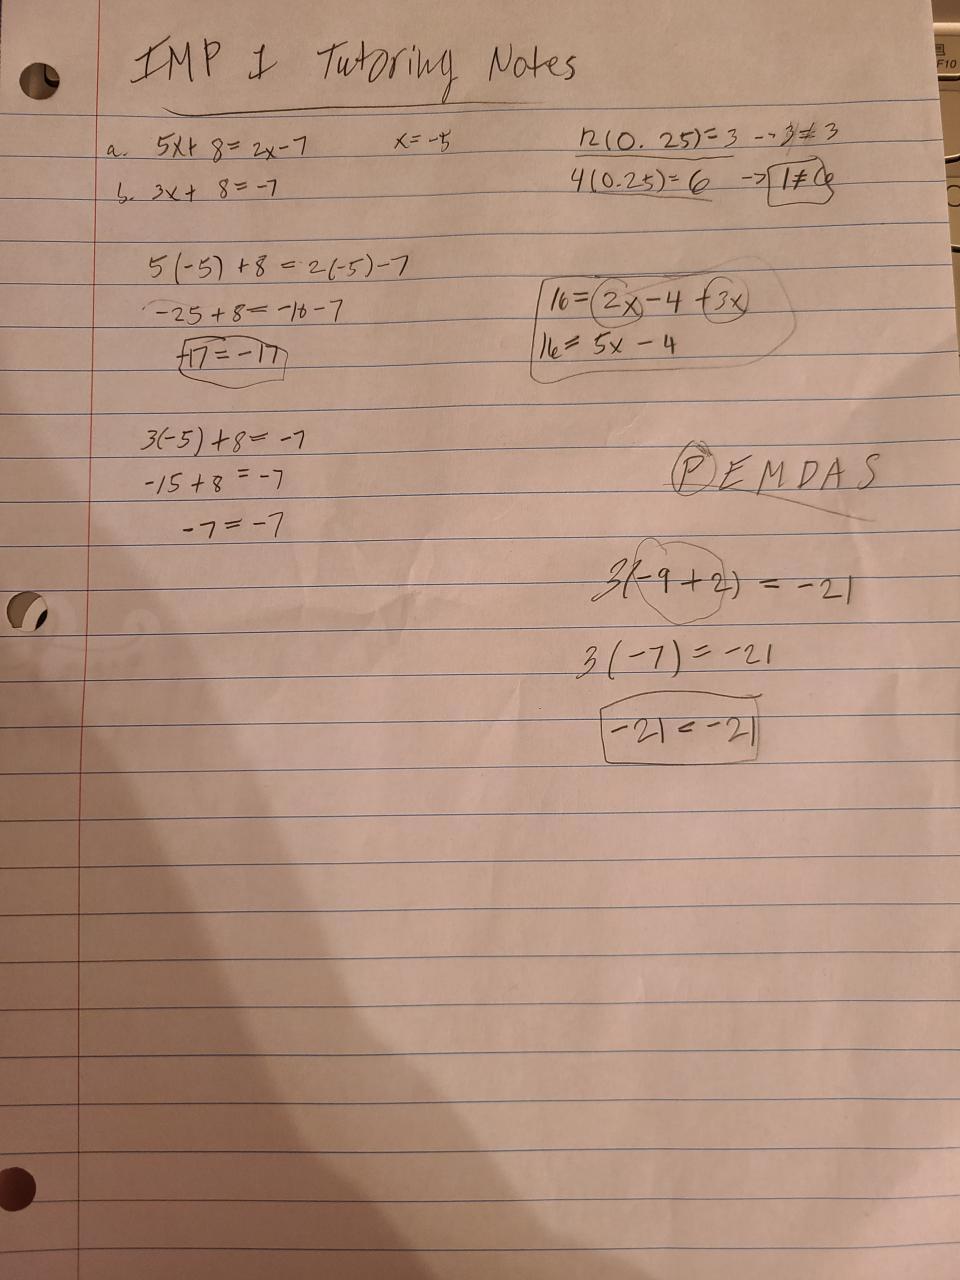 IMP 1 Tutoring Notes
a. 5x+ 8 = 2x-7 x = -5
b. 3x + 8 = -7
12(0.25) = 3 --> 3 ≠ 3
4(0.25) = 6 -> 1 ≠ 6
5(-5) +8 = 2(-5)-7
-25 +8 = -10 -7
-17 = -17
3(-5) +8 = -7
-15 +8 = -7
-7 = -7
16 = 2x -4 +3x
16 = 5x - 4
PEMDAS
3(-9+2) = -21
3(-7) = -21
-21 = -21
F10